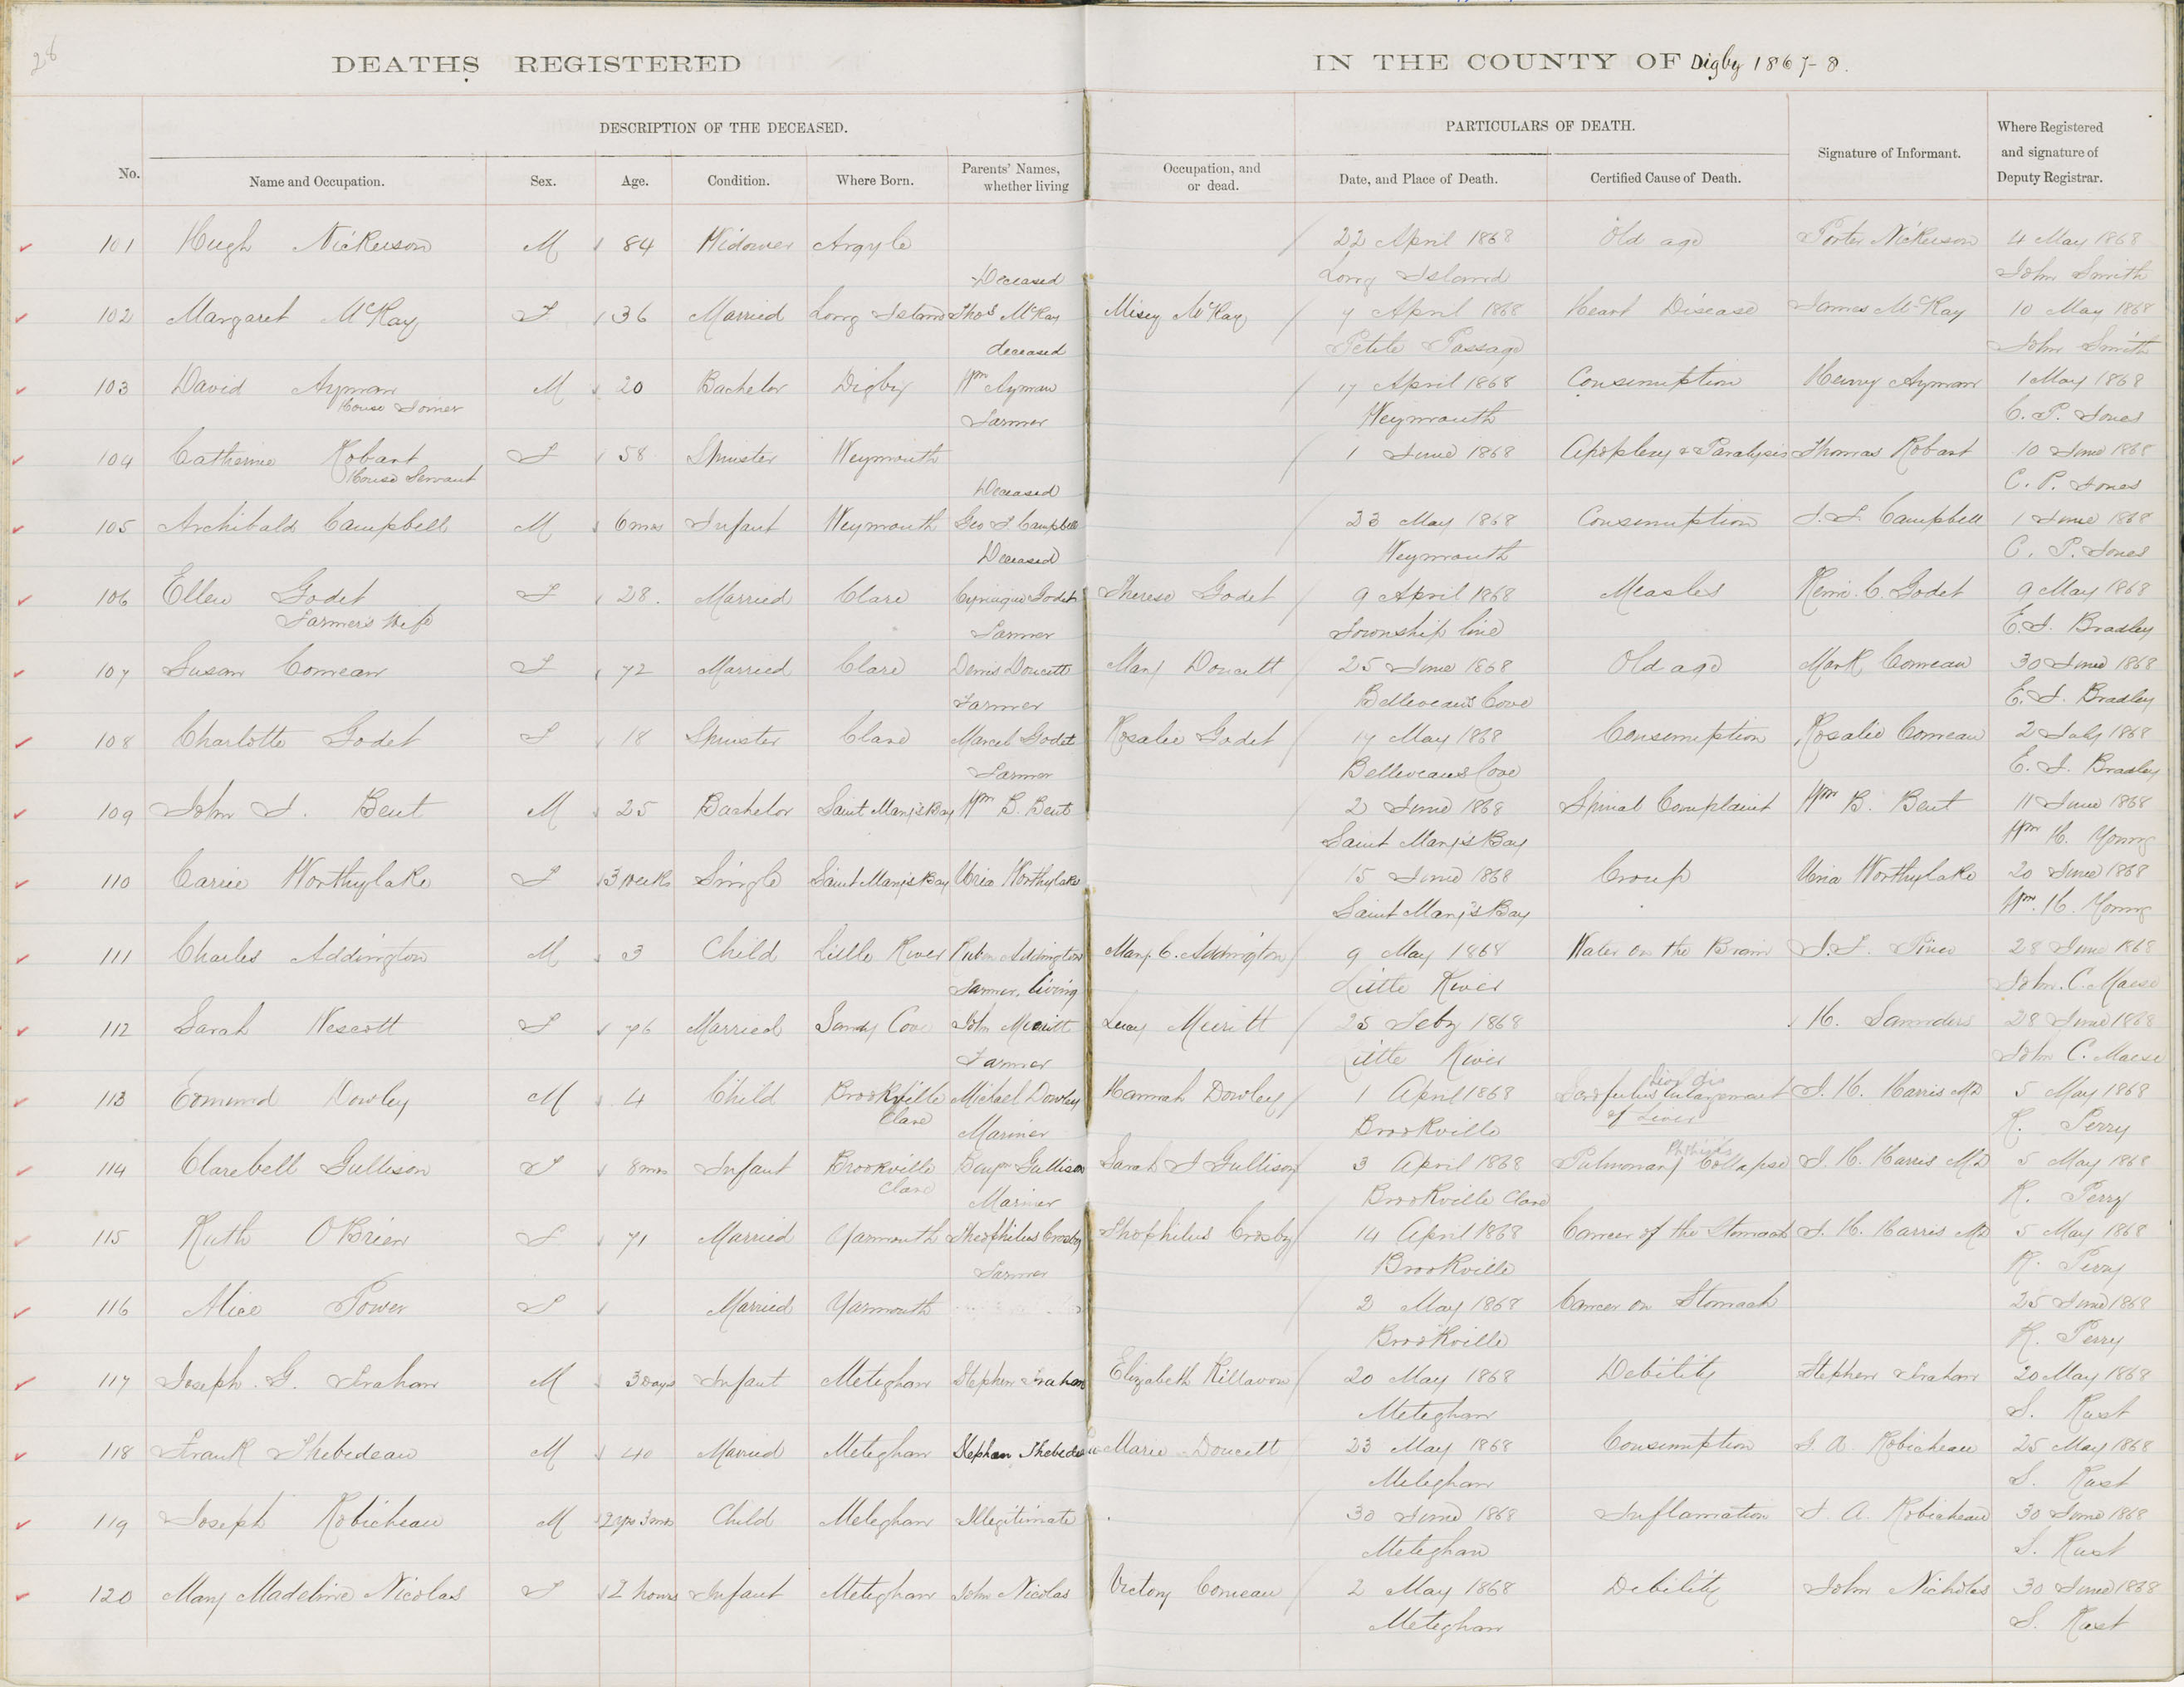 28
DEATHS REGISTERED IN THE COUNTY OF Digby 1867-8.
DESCRIPTION OF THE DECEASED. PARTICULARS OF DEATH. Where Registered
and signature of
Deputy Registrar.
No. Name and Occupation. Sex. Age. Condition. Where Born. Parents' Names, whether living Occupation, and or dead. Date, and Place of Death. Certified Cause of Death. Signature of Informant.
101 Hugh Nickerson M 84 Widower Argyle 22 April 1868 Old age Porter Nickerson 4 May 1868
Long Island John Smith
Deceased
102 Margaret McKay F 36 Married Long Island Thos McKay Misey McKay 7 April 1868 Heart Disease James McKay 10 May 1868
Petite Passage John Smith
deceased
103 David Ayman M 20 Bachelor Digby Wm Ayman 17 April 1868 Consumption Henry Ayman 1 May 1868
House Joiner Weymouth C. P. Jones
Farmer
104 Catherine Robart F 58 Spinster Weymouth 1 June 1868 Apoplexy & Paralysis Thomas Robart 10 June 1868
House Servant C. P. Jones
Deceased
105 Archibald Campbell M 6 mos Infant Weymouth Geo J. Campbell 23 May 1868 Consumption Campbell 1 June 1868
Deceased Weymouth C. P. Jones
106 Ellen Godet F 28. Married Clare Cyriaque Godet Therese Godet 9 April 1868 Measles Remi. C. Godet 9 May 1868
Farmer's Wife Farmer Township line E. J. Bradley
107 Susan Comeau F 72 Married Clare Denis Doucett Mary Doucett 25 June 1868 Old age Mark Comeau 30 June 1868
Farmer Belleveau's Cove E. J. Bradley
108 Charlotte Godet F 18 Spinster Clare Marcel Godet Rosalie Godet 17 May 1868 Consumption Rosalie Comeau 2 July 1868
Farmer Belleveaus Cove E. J. Bradley
109 John J. Bent M 25 Bachelor Saint Mary's Bay Wm B. Bent 2 June 1868 Spinal Complaint Wm B. Bent 11 June 1868
Saint Mary's Bay Wm H. Young
110 Carrie Worthylake F 3 weeks Single Saint Mary's Bay Uria Worthylake 15 June 1868 Croup Uria Worthylake 20 June 1868
Saint Mary's Bay Wm. H. Young
111 Charles Addington M 3 Child Little River Ruben Addington Mary C. Addington 9 May 1868 Water on the Brain 28 June 1868
Farmer, living Little River John. C. Maese
112 Sarah Wescott F 76 Married Sandy Cove John Merritt Lucy Merritt 25 Feby 1868 H. Saunders 28 June 1868
Farmer Little River John C. Maese
113 Edmund Dowley M 4 Child Brookville Michael Dowley Hannah Dowley 1 April 1868 Scrofulus Enlargement J. H. Harris MD 5 May 1868
Clare of Liver
Mariner Brookville R. Perry
114 Clarebell Gullison F 8 mos Infant Brookville Benjn Gullison Sarah J Gullison 3 April 1868 Pulmonary Phthisis Collapse J. H. Harris MD 5 May 1868
Clare Mariner Brookville Clare R. Perry
115 Ruth O'Brien F 71 Married Yarmouth Theophilus Crosby Theophilus Crosby 14 April 1868 Cancer of the Stomach J. H. Harris MD 5 May 1868
Farmer Brookville R. Perry
116 Alice Power F Married Yarmouth 2 May 1868 Cancer on Stomach 25 June 1868
Brookville R. Perry
117 Joseph. G. Trahan M 3 Days Infant Meteghan Stephen Trahan Elizabeth Killavon 20 May 1868 Debility Stephen Trahan 20 May 1868
Meteghan S. Rust
118 Frank Thebedeau M 40 Married Meteghan Stephen Thebedeau Marie Doucett 23 May 1868 Consumption J. A. Robicheau 25 May 1868
Meteghan S. Rust
119 Joseph Robicheau M 2 yrs 3 mos Child Meteghan Illegitimate 30 June 1868 Inflamation J. A. Robicheau 30 June 1868
Meteghan S. Rust
120 Mary Madeline Nicolas F 2 hours Infant Meteghan John Nicolas Victory Comeau 2 May 1868 Debility John Nicholas 30 June 1868
Meteghan S. Rust